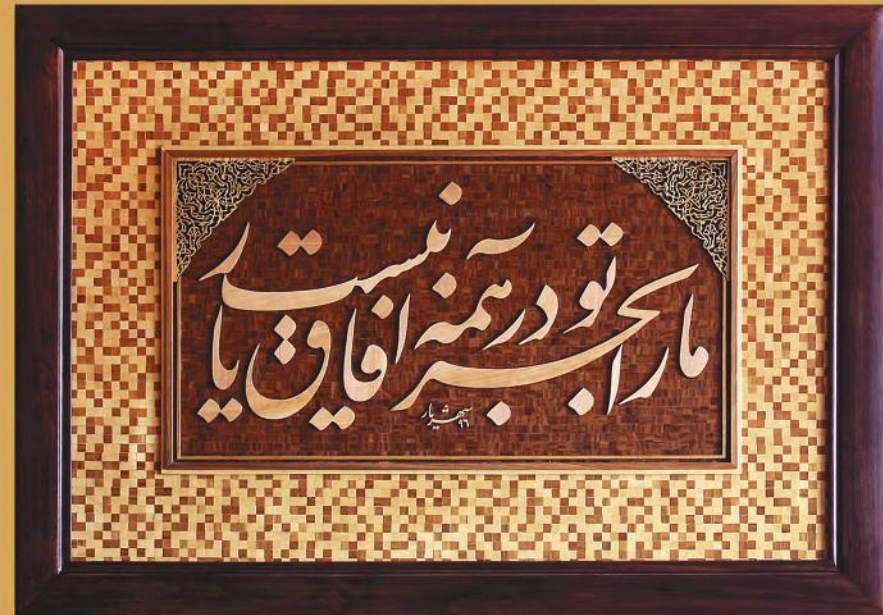 ما را بجز تو در همه آفاق یار نیست
شهریار ۹۶